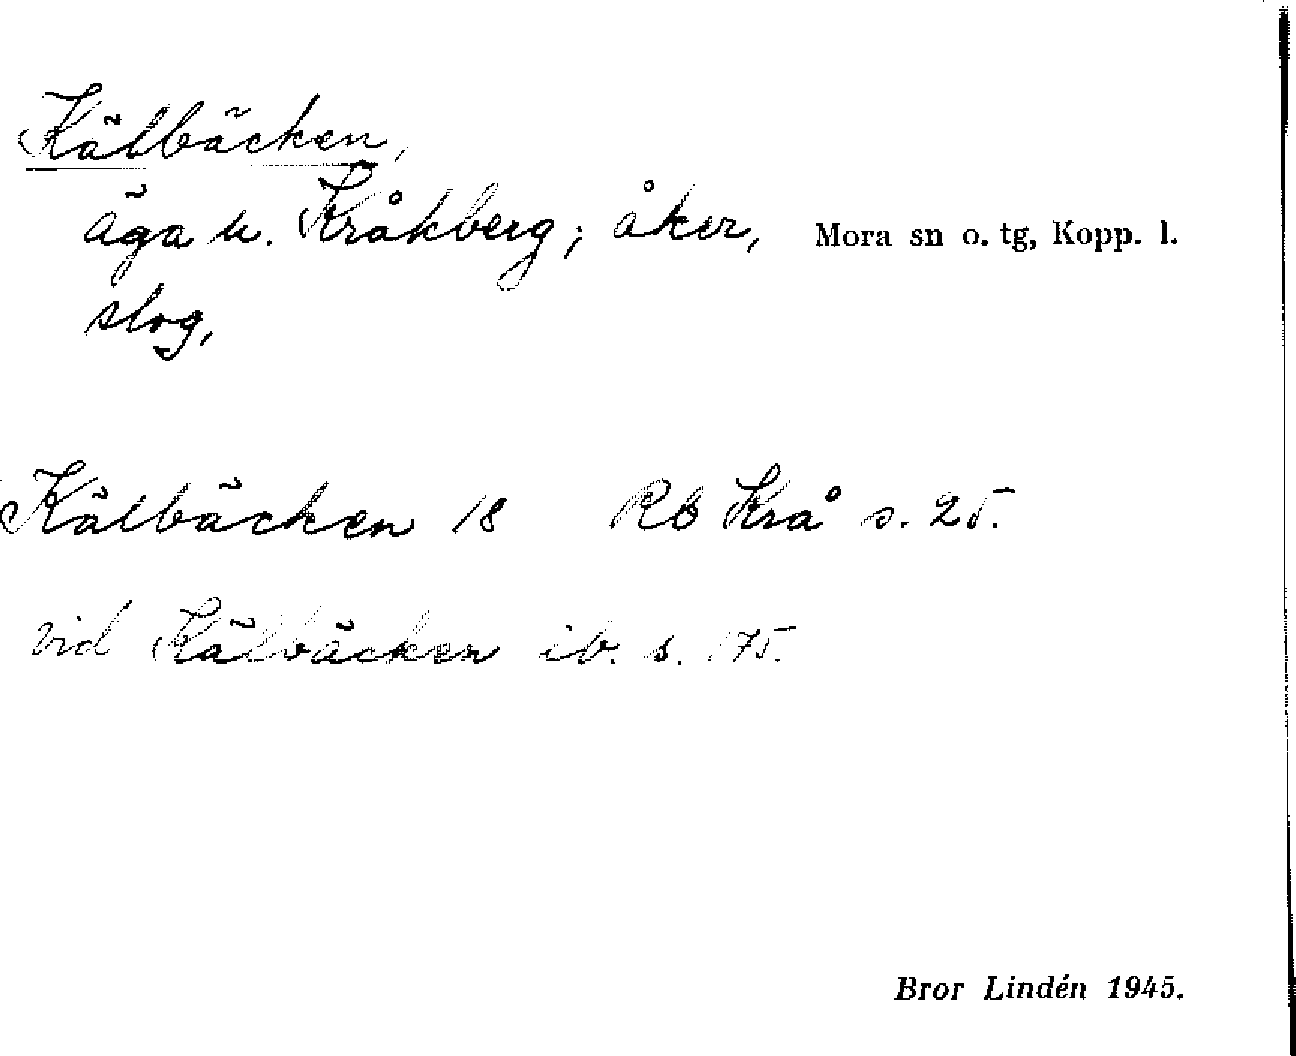 Kälbäcken,
äga u. Kråkberg; åker, Mora sn o. tg, Kopp. l.
slog,
Kälbäcken 18 Rb Krå s. 25.
vid Kälbäcken ib. s. 175.
Bror Lindén 1945.